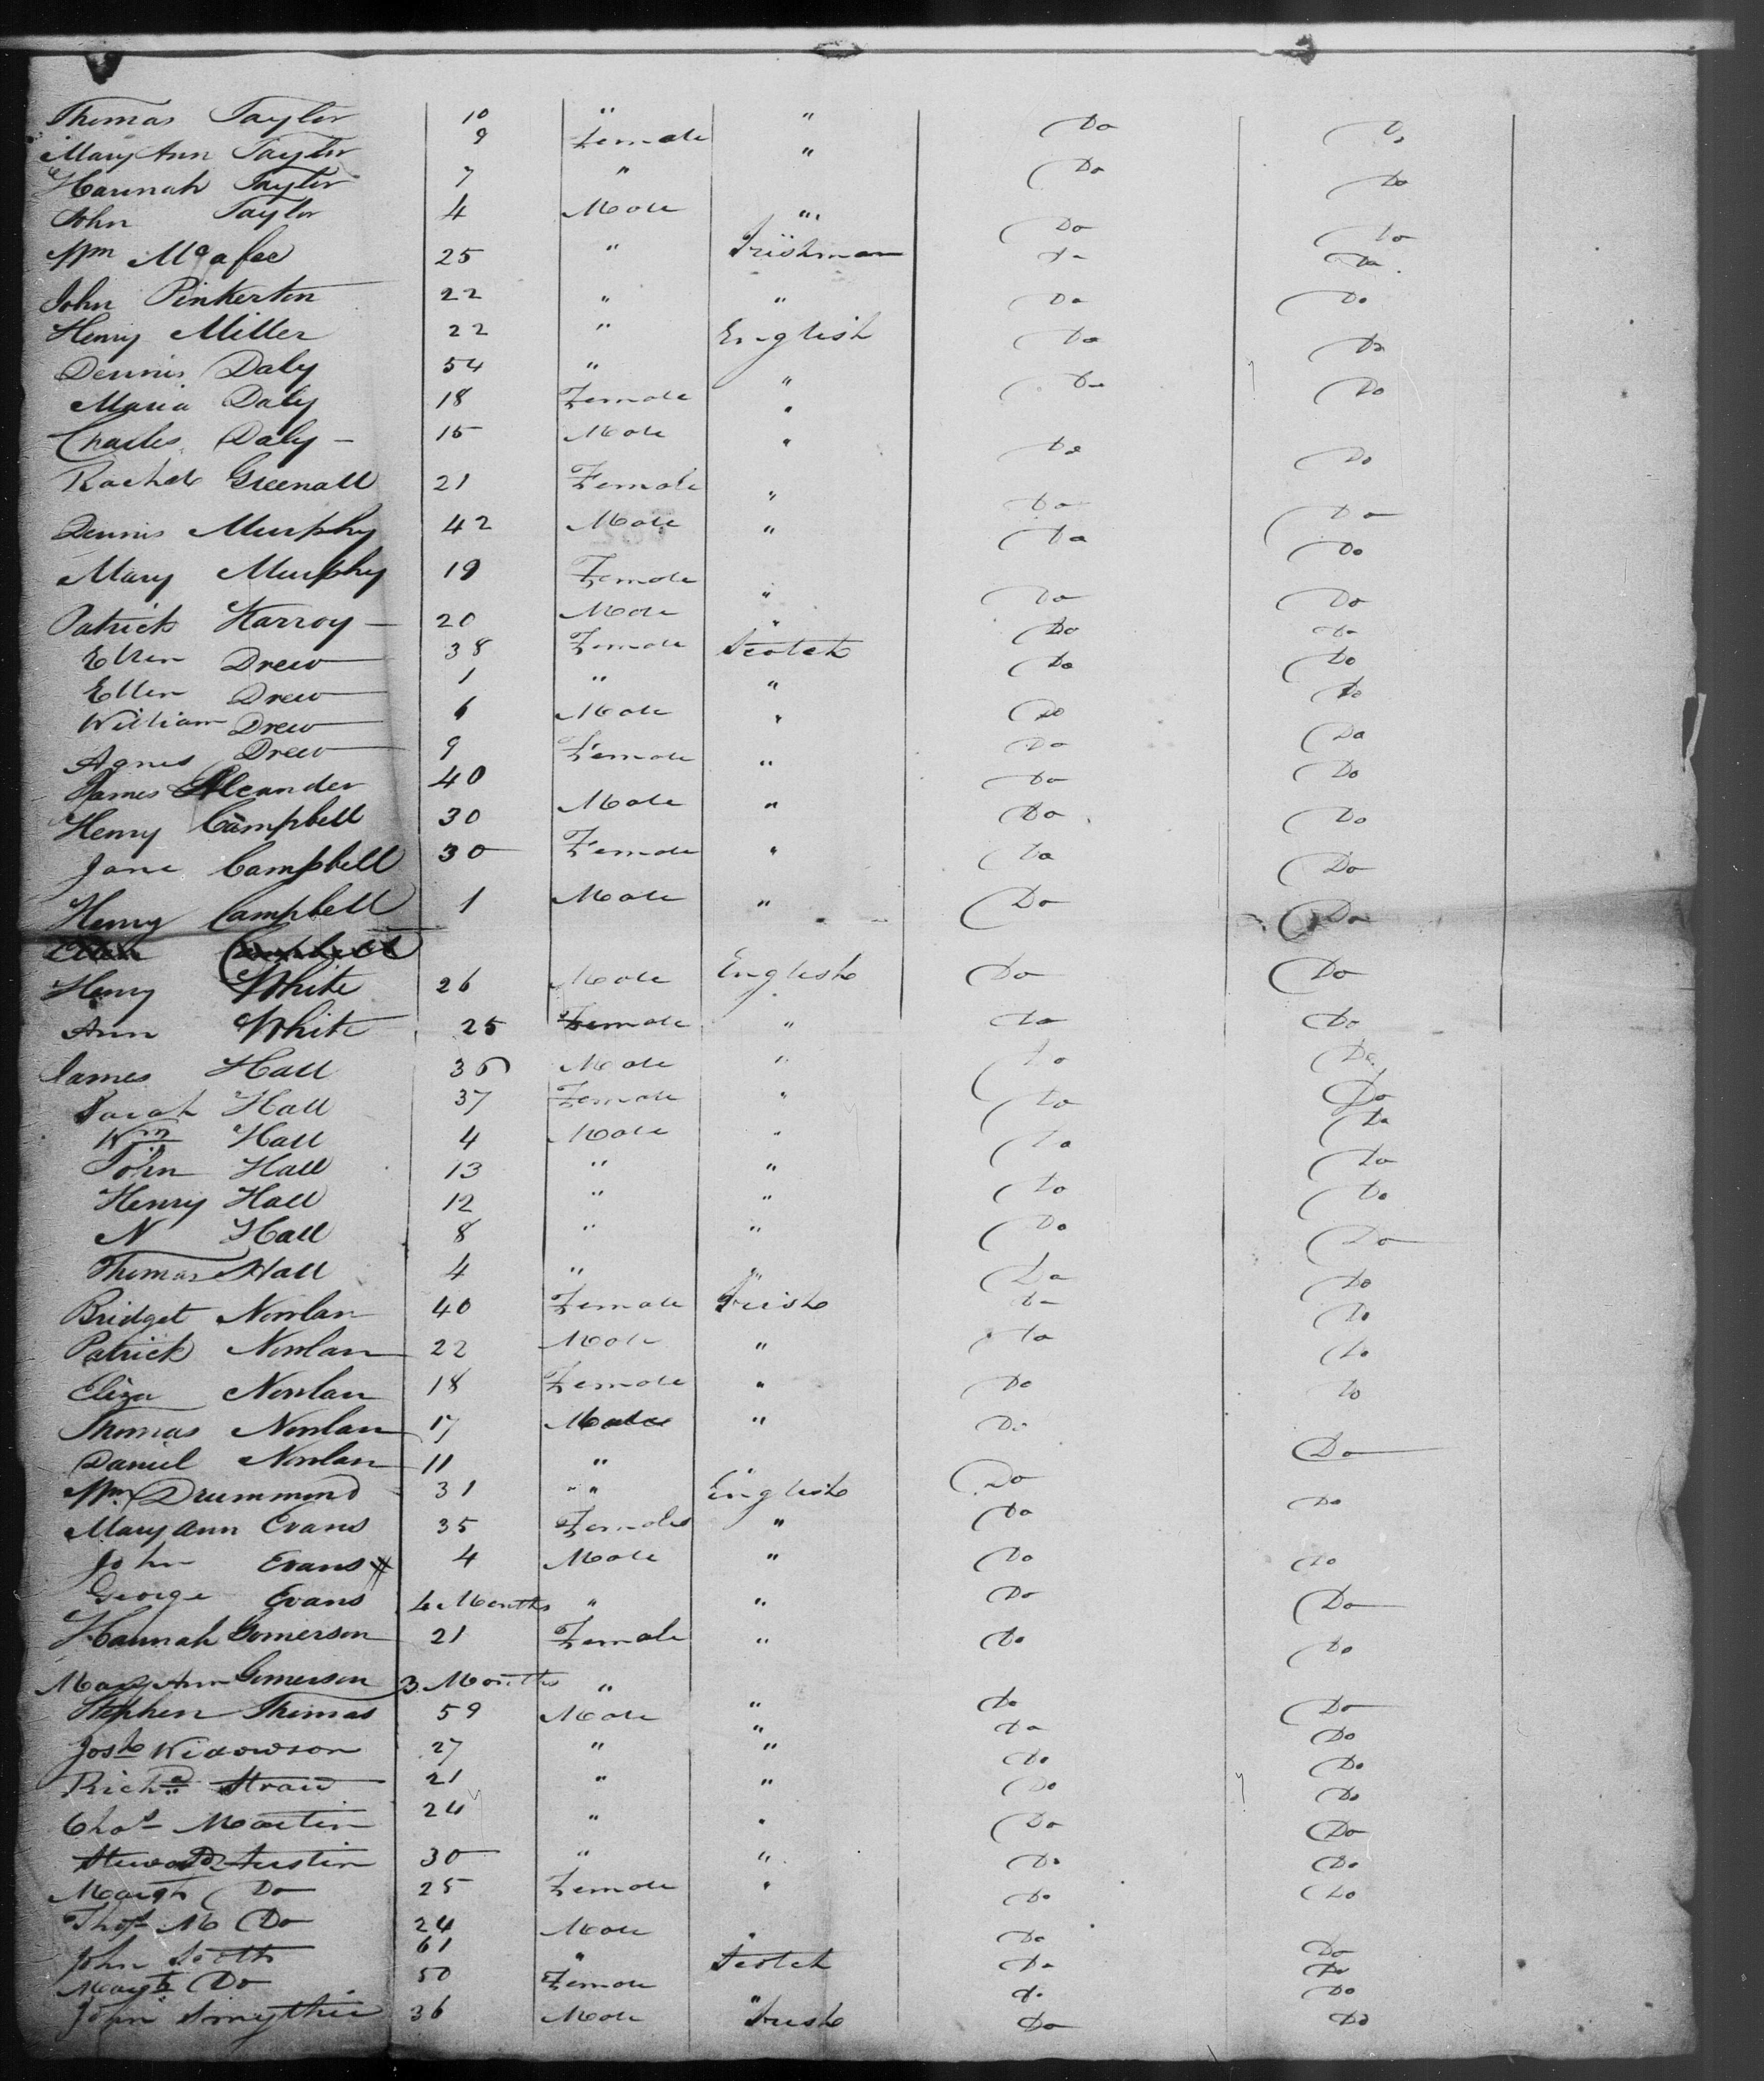 Thomas Taylor 10 " " Do Do
Mary Ann Taylor 9 Female " Do Do
Hannah Taylor 7 "
John Taylor 4 Male " Do Do
Wm McAfee 25 " Irishman Do Do
John Pinkerton 22 " " Do Do
Henry Miller 22 " English Do Do
Dennis Daly 54 " " Do Do
Maria Daly 18 Female "
Charles Daly - 15 Male " Do Do
Rachel Greenall 21 Female " Do Do
Dennis Murphy 42 Male " Do Do
Mary Murphy 19 Female " Do Do
Patrick Karroy - 20 Male " Do Do
Ellen Drew 38 Female Scotch Do Do
Ellen Drew 1 " " Do Do
William Drew 6 Male " Do Do
Agnes Drew 9 Female " Do Do
James Alcander 40
Henry Campbell 30 Male " Do Do
Jane Campbell 30 Female " Do Do
Henry Campbell 1 Male " Do Do
Ellen Campbell
Henry White 26 Male English Do Do
Ann White 25 Female " Do Do
James Hall 36 Male " Do Do
Sarah Hall 37 Female " Do Do
Wm Hall 4 Male " Do Do
John Hall 13 " " Do Do
Henry Hall 12 " " Do Do
N Hall 8 " " Do Do
Thomas Hall 4 " " Do Do
Bridget Nowlan 40 Female Irish Do Do
Patrick Nowlan 22 Male " Do Do
Eliza Nowlan 18 Female " Do Do
Thomas Nowlan 17 Male " Do Do
Daniel Nowlan 11 " "
Wm Drummond 31 " English Do Do
Mary Ann Evans 35 Female " Do
John Evans 4 Male " Do Do
George Evans 4 Months " " Do Do
Hannah Gomerson 21 Female " Do Do
Mary Ann Gomerson 3 Months "
Stephen Thomas 59 Male " Do Do
Josh Widowson 27 " " Do Do
Richd Straw 21 " " Do Do
Chas Martin 24 " " Do Do
Steward Austin 30 " " Do Do
Margt Do 25 Female " Do Do
Thos M Do 24 Male " Do Do
John Scott 61 " Scotch Do Do
Margt Do 50 Female " Do Do
John Smythie 36 Male Irish Do Do